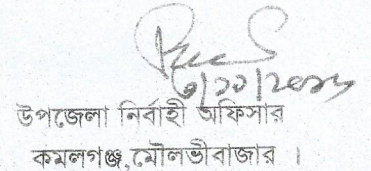 উপজেলা নির্বাহী অফিসার
কমলগঞ্জ,মৌলভীবাজার ।